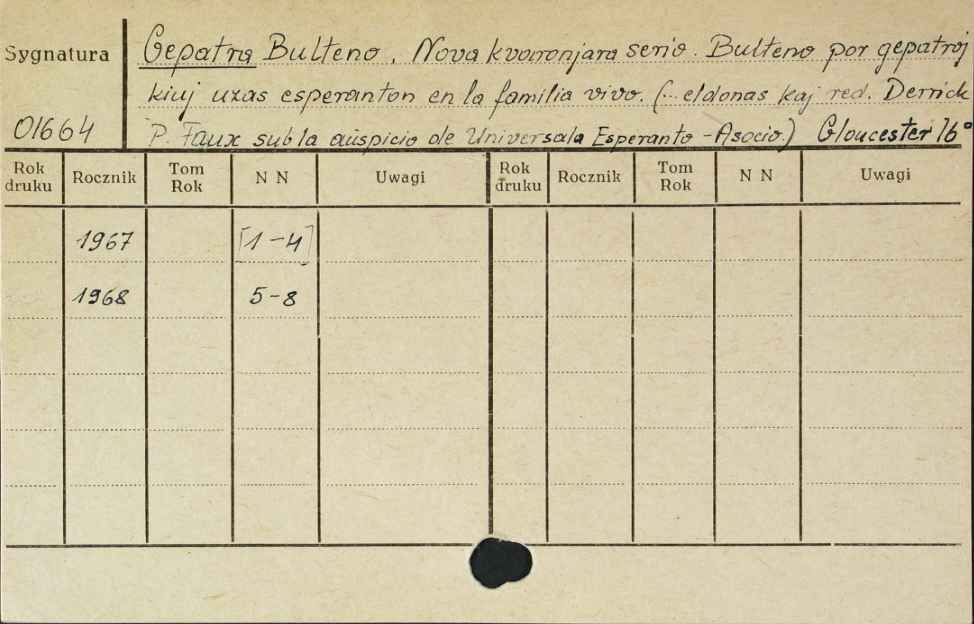 Sygnatura
Gepatra Bulteno. Nova kvaronjara serio. Bulteno por gepatroj
kiuj uzas esperanton en la familia vivo. (... eldonas kaj red. Derrick
01664
P. Faux sub la aŭspicio de Universala Esperanto-Asocio.) Gloucester 16°
Rok druku Rocznik Tom Rok N N Uwagi Rok druku Rocznik Tom Rok N N Uwagi
1967 [1-4]
1968 5-8